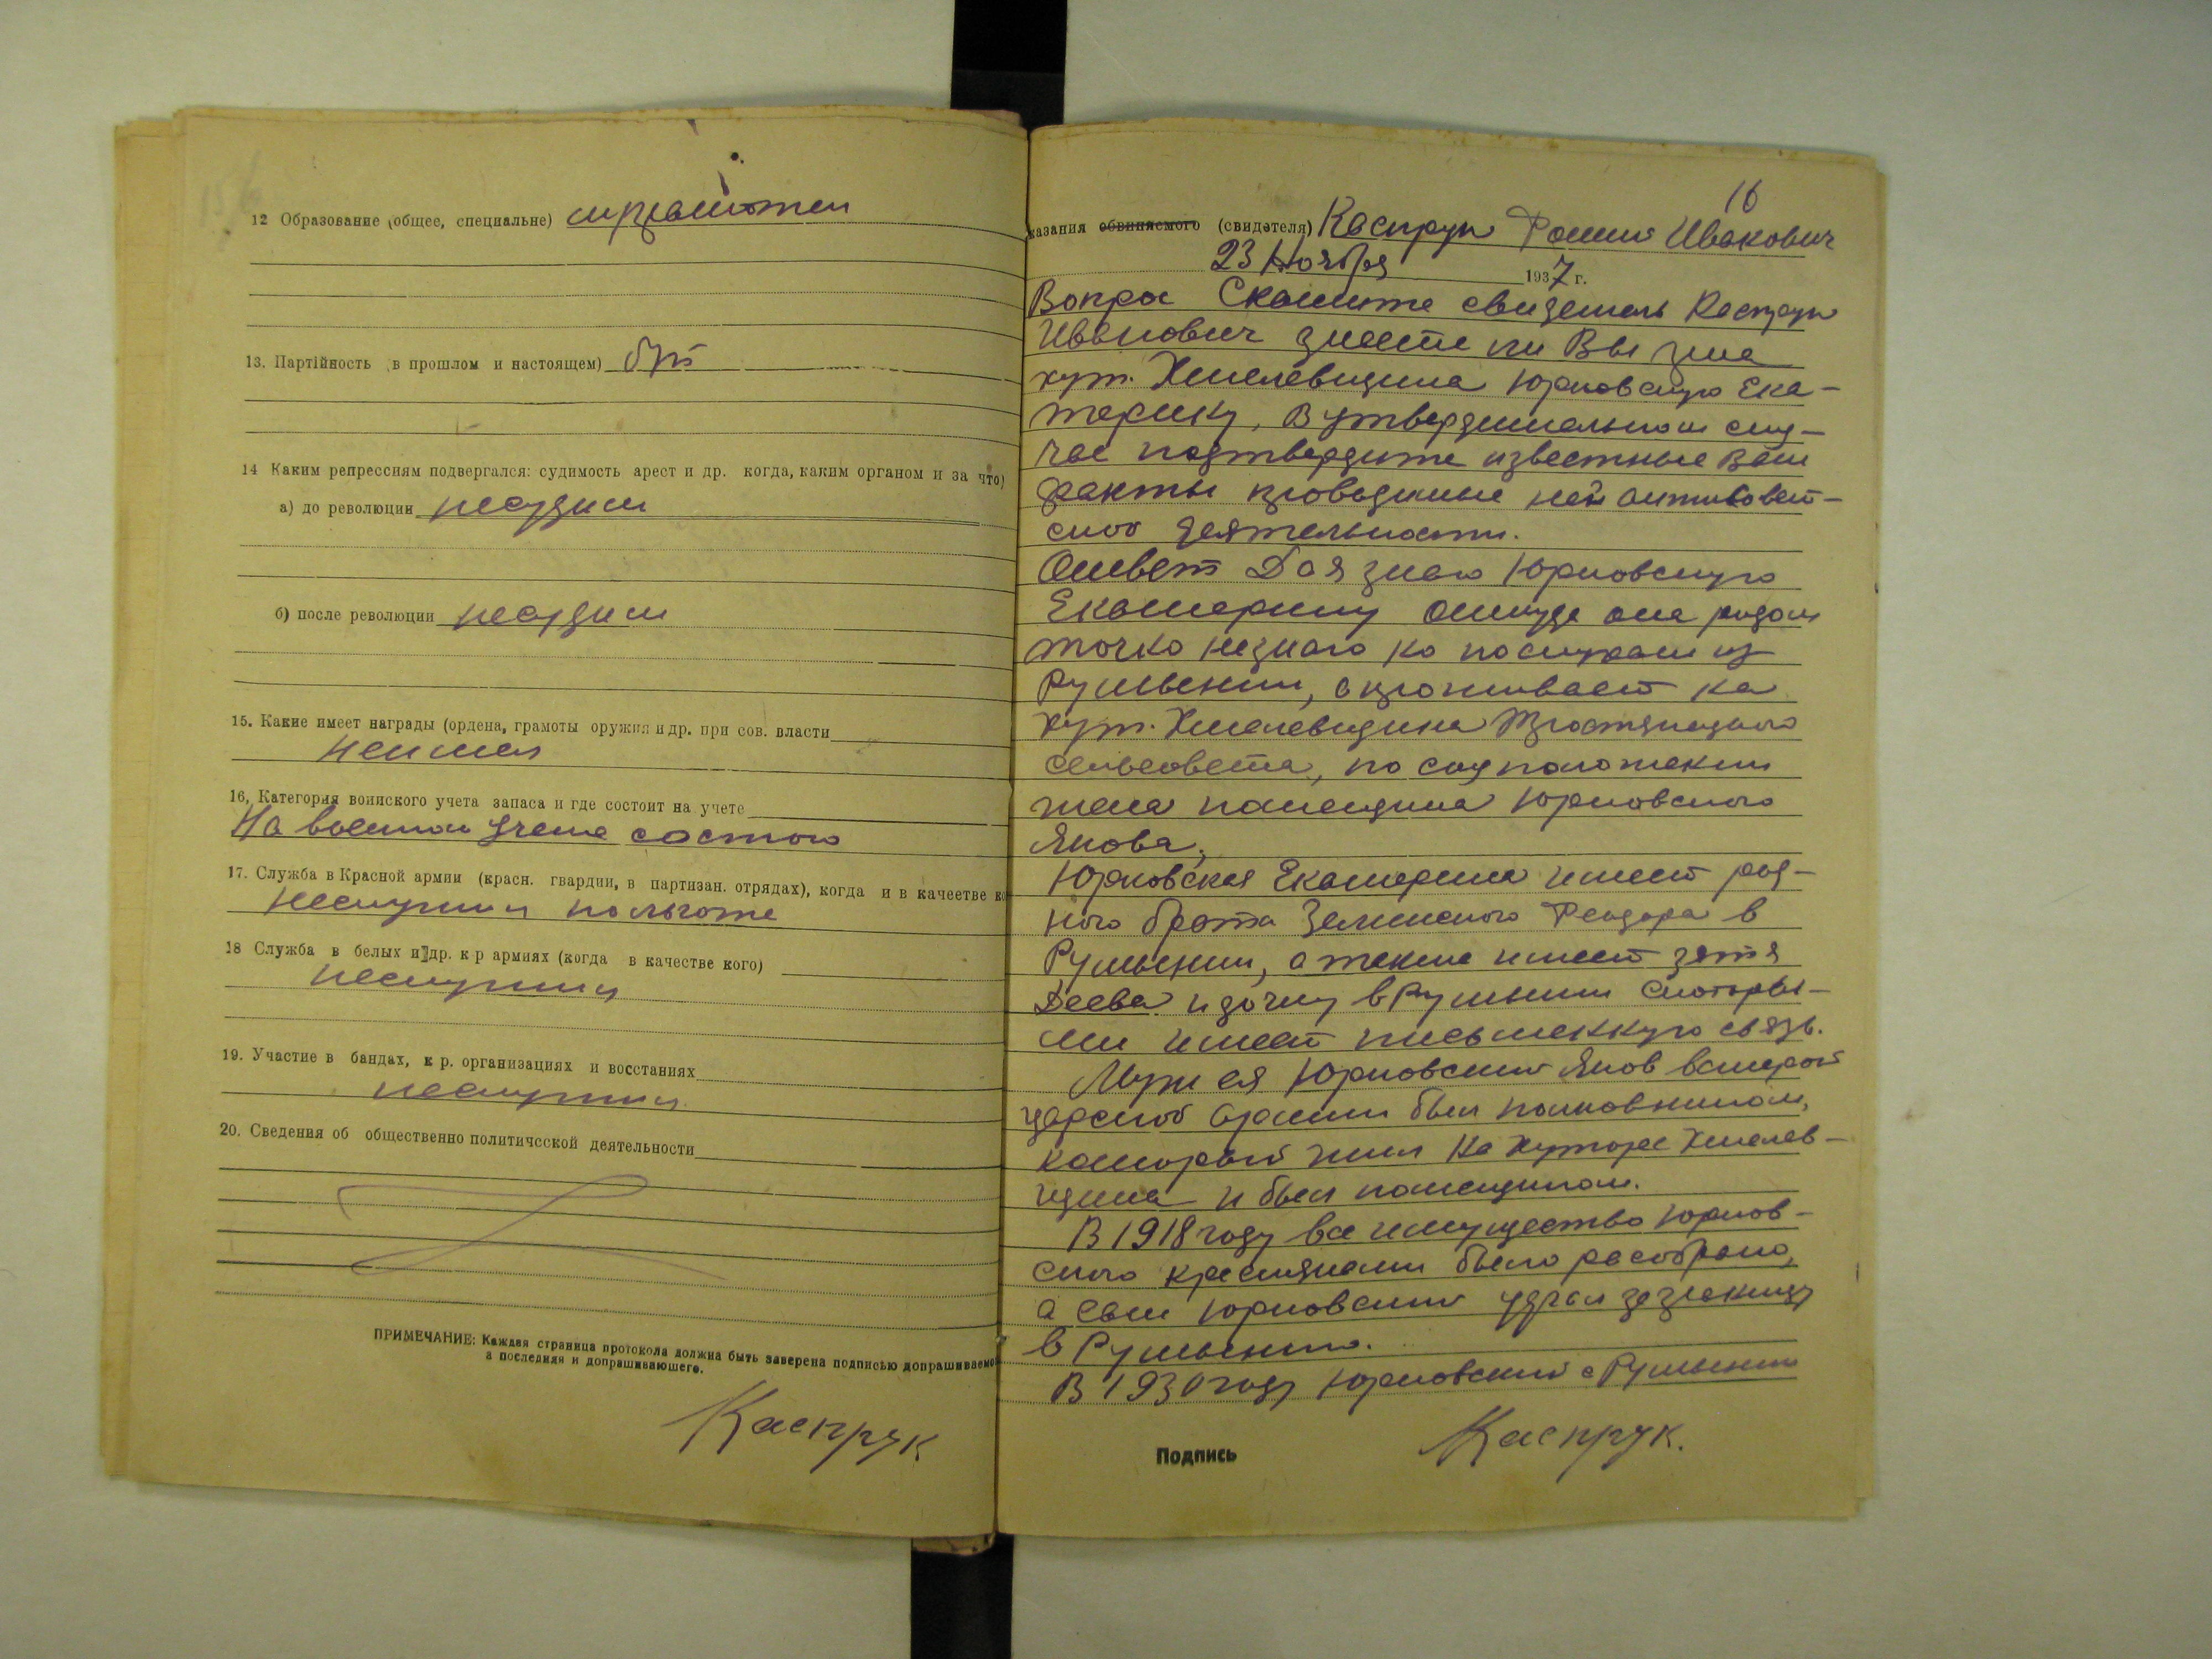 12 Образование (общее, специальне) мцграмотен
13. Партійность в прошлом и настоящем) б/п
14 Каким репрессиям подвергался: судимость арест и др. когда, каким органом и за что)
а) до революции несудим
б) после революции несудим
15. Какие имеет награды (ордена, грамоты оружия и др. при сов. власти
неимел
16, Категория воинского учета запаса и где состоит на учете
На военом учете состою
17. Служба в Красной армии (красн. гвардии, в партизан. отрядах), когда и в качеетве ко
неслужил польготе
18 Служба в белых и др. к р армиях (когда в качестве кого)
неслужил
19. Участие в бандах, к р. организациях и восстаниях
неслужил
20. Сведения об общественно политичсской деятельности
ПРИМЕЧАНИЕ: Каждая страница протокола должна быть заверена подписью допрашиваемо
а последняя и допрашивающего.
Каспрук
16
казания обвиняемого (свидетеля) Каспрук Фомы Иванович
23 Ноября 1937 г.
Вопрос Скажите свидетель Каспрук
Иванович знаете ли Вы
хут. Хмелевщина Юрковскую Ека-
терину, В утвердительном слу-
чае подтвердите известные Вам
факты проводимые ней антисовет-
ской деятельности.
Ответ Да я знаю Юрковскую
Екатерину откуда она родом
точко незнаю но послухам из
Румынии, а проживает на
хут. Хмелевщина
сельсовета, по соцположении
жена помещика Юрковского
Якова.
Юрковская Екатерина имеет род-
ного брата Зелинского Феодора в
Румынии, а также имеет зятя
Деева и дочку в Румынии скоторы-
ми имеет письменную связь.
Муж ея Юрковский Яков встарой
царской армии был полковником,
который жил На Хуторе Хмелев-
щина и был помещиком.
В 1918 году все имущество Юрков-
ского крестянами было расобрано,
а сам Юрковский удрал зазганицу
в Румынию.
В 1930 году Юрковский с Румынии
Подпись Каспрук.